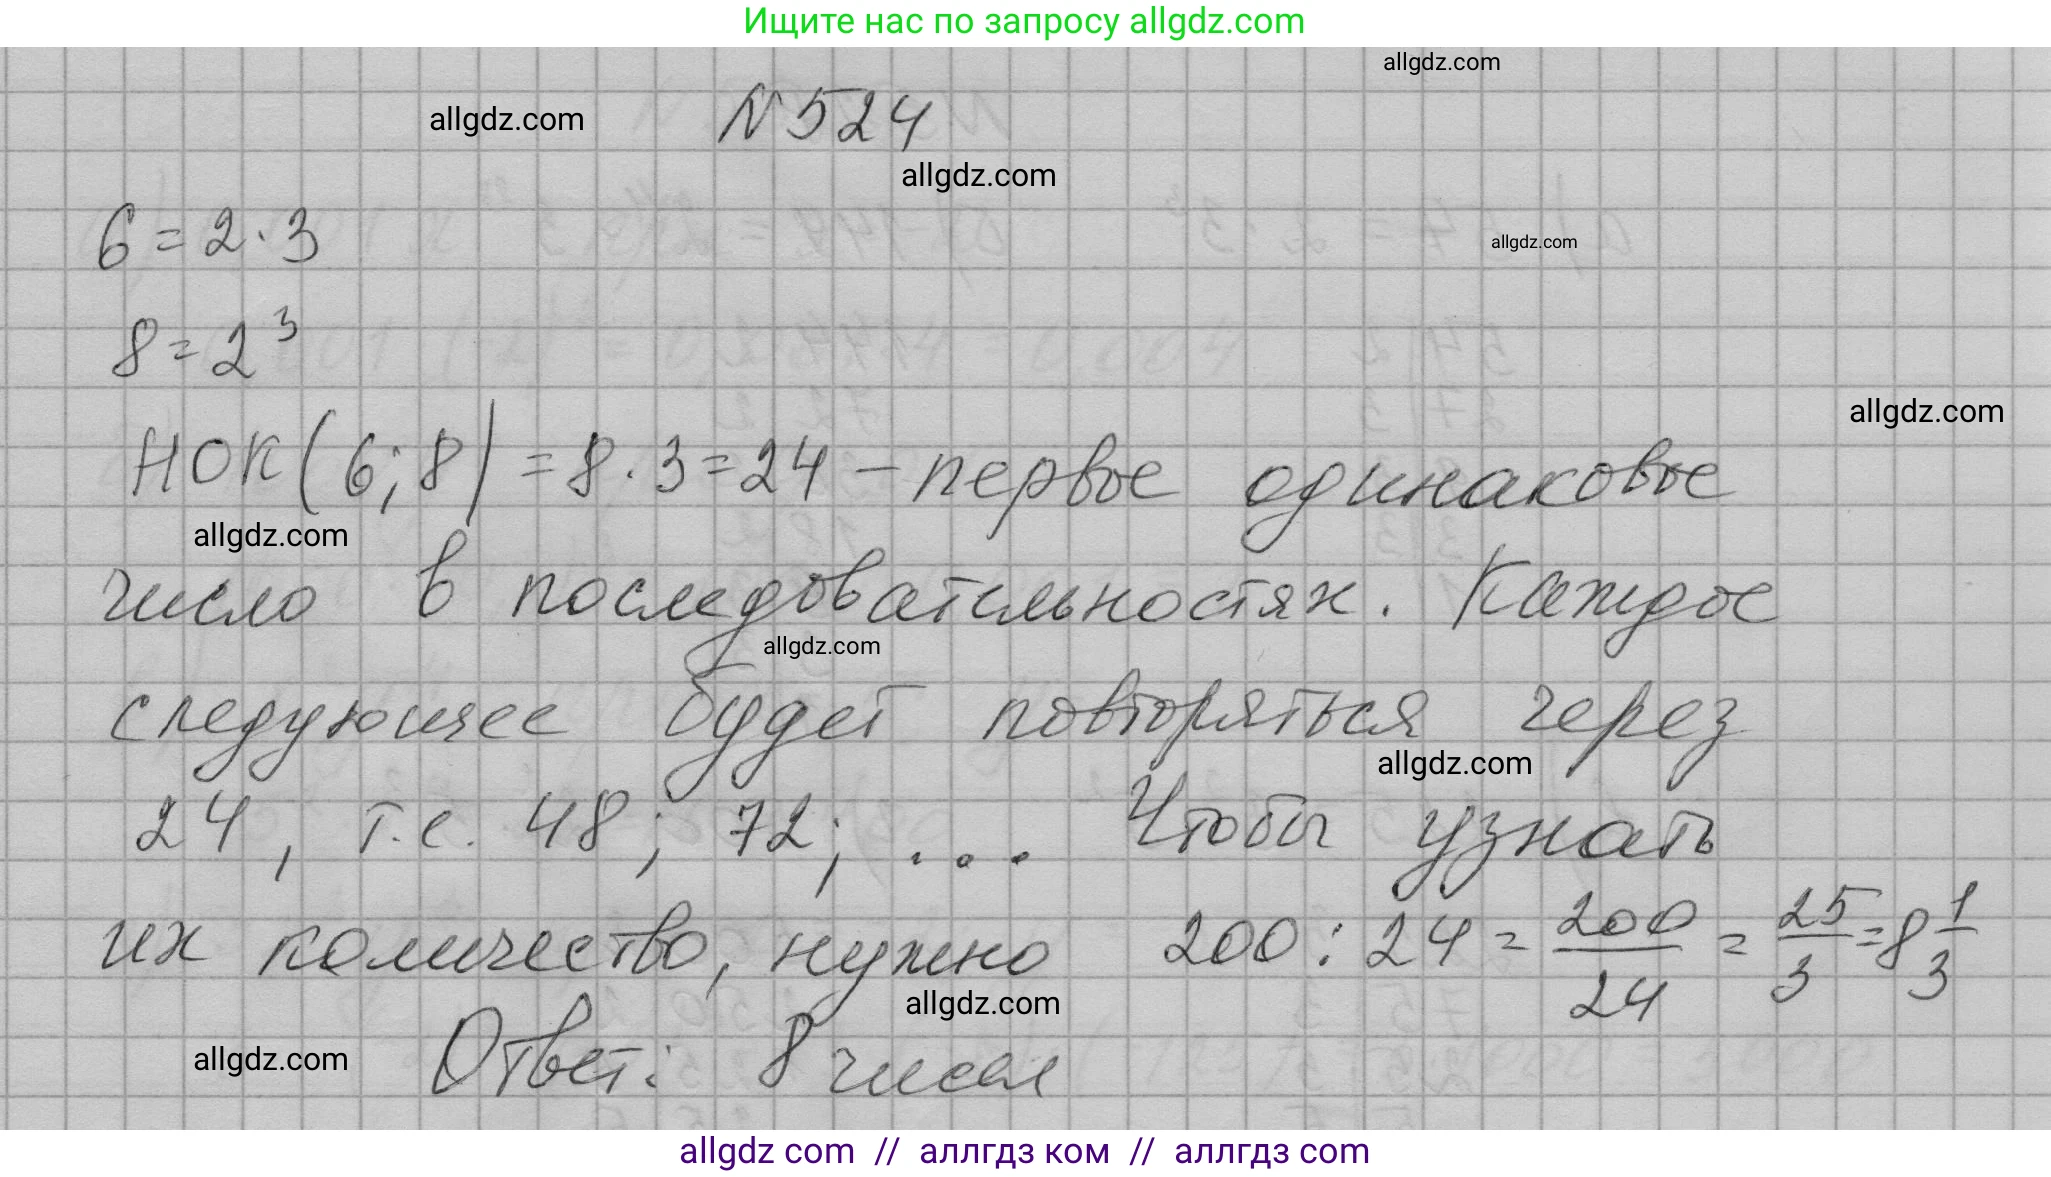 Ищите нас по запросу allgdz.com
allgdz.com
allgdz.com
N 524
allgdz.com
6 = 2 · 3
allgdz.com
8 = 2³
allgdz.com
НОК (6; 8) = 8 · 3 = 24 – первое одинаковое
allgdz.com
число в последовательностях. Каждое
allgdz.com
следующее будет повторяться через
allgdz.com
24, т.е. 48; 72; ... Чтобы узнать
их количество, нужно 200 : 24 = 200/24 = 25/3 = 8 1/3
allgdz.com
allgdz.com
Ответ: 8 чисел
allgdz com // аллгдз ком // аллгдз com